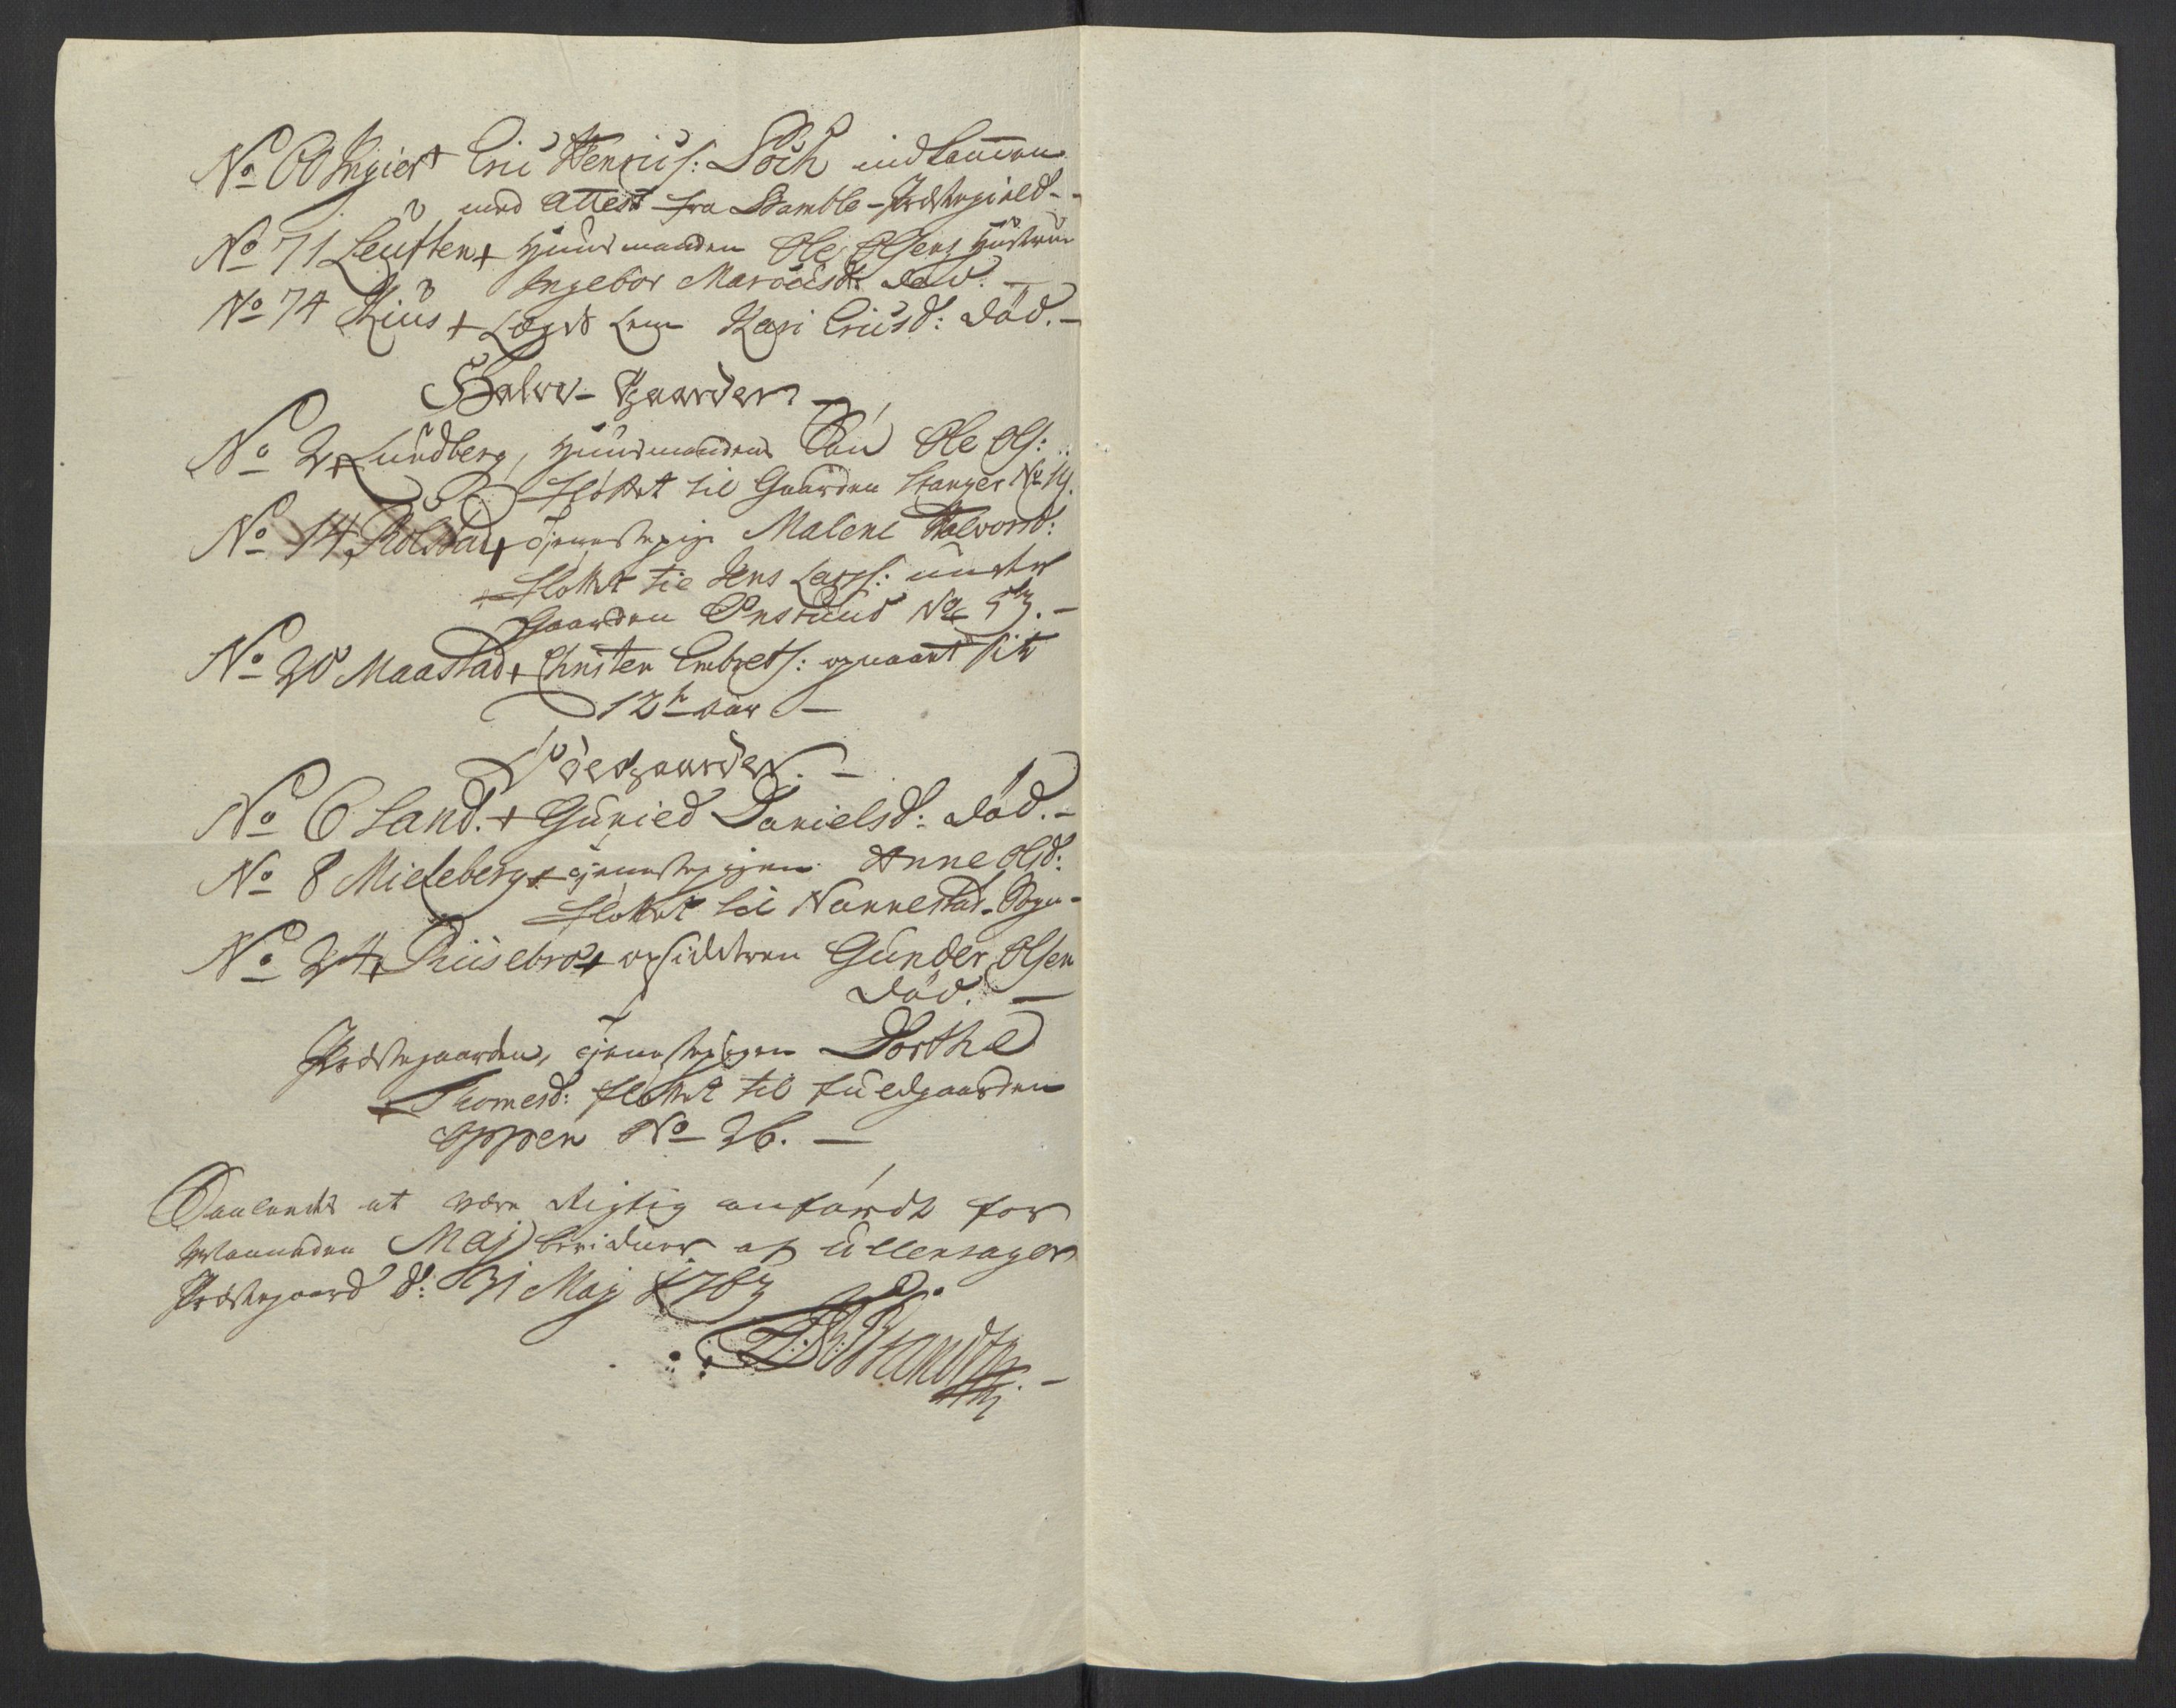 No 60 Ingier + Eric Henrics: Söth indkommen
med Attest fra Bamble-Præstegield -
No 71 Leuften + Huusmanden Ole Olsens Hustrue
Ingebor Marcusd: død. -
No 74 Kius + Lægds Lem Kari Ericsd: død. -
Halve-Gaarder -
No 2 + Lundberg, Huusmandens Søn Ole Ols:
fløttet til Gaarden Stanger No 14.
No 14, Rolstad + tjenestepige Malene Halvorsd:
+ fløttet til Jens Lars: under
Gaarden Onsrud No 53. -
No 20 Maastad + Christen Embrets: opnaaet sit
12te aar -
Ødegaarder. -
No 6 Sand. + Gunied Danielsd: død. -
No 8 Mieleberg + tjenestepigen Anne Olsd:
fløttet til Nannestad-Sogn -
No 24 + Kiisebroe + opsidderen Gunder Olsen
død. -
Præstegaarden, tjenestepigen Dorthe
+ Thomesd: fløttet til fuldgaarden
Oppen No 26. -
Saaledes at være Rigtig anført for
Maaneden Maj bevidner af Ullensager
Præstegaard d: 31 Maj 1763
Brandt